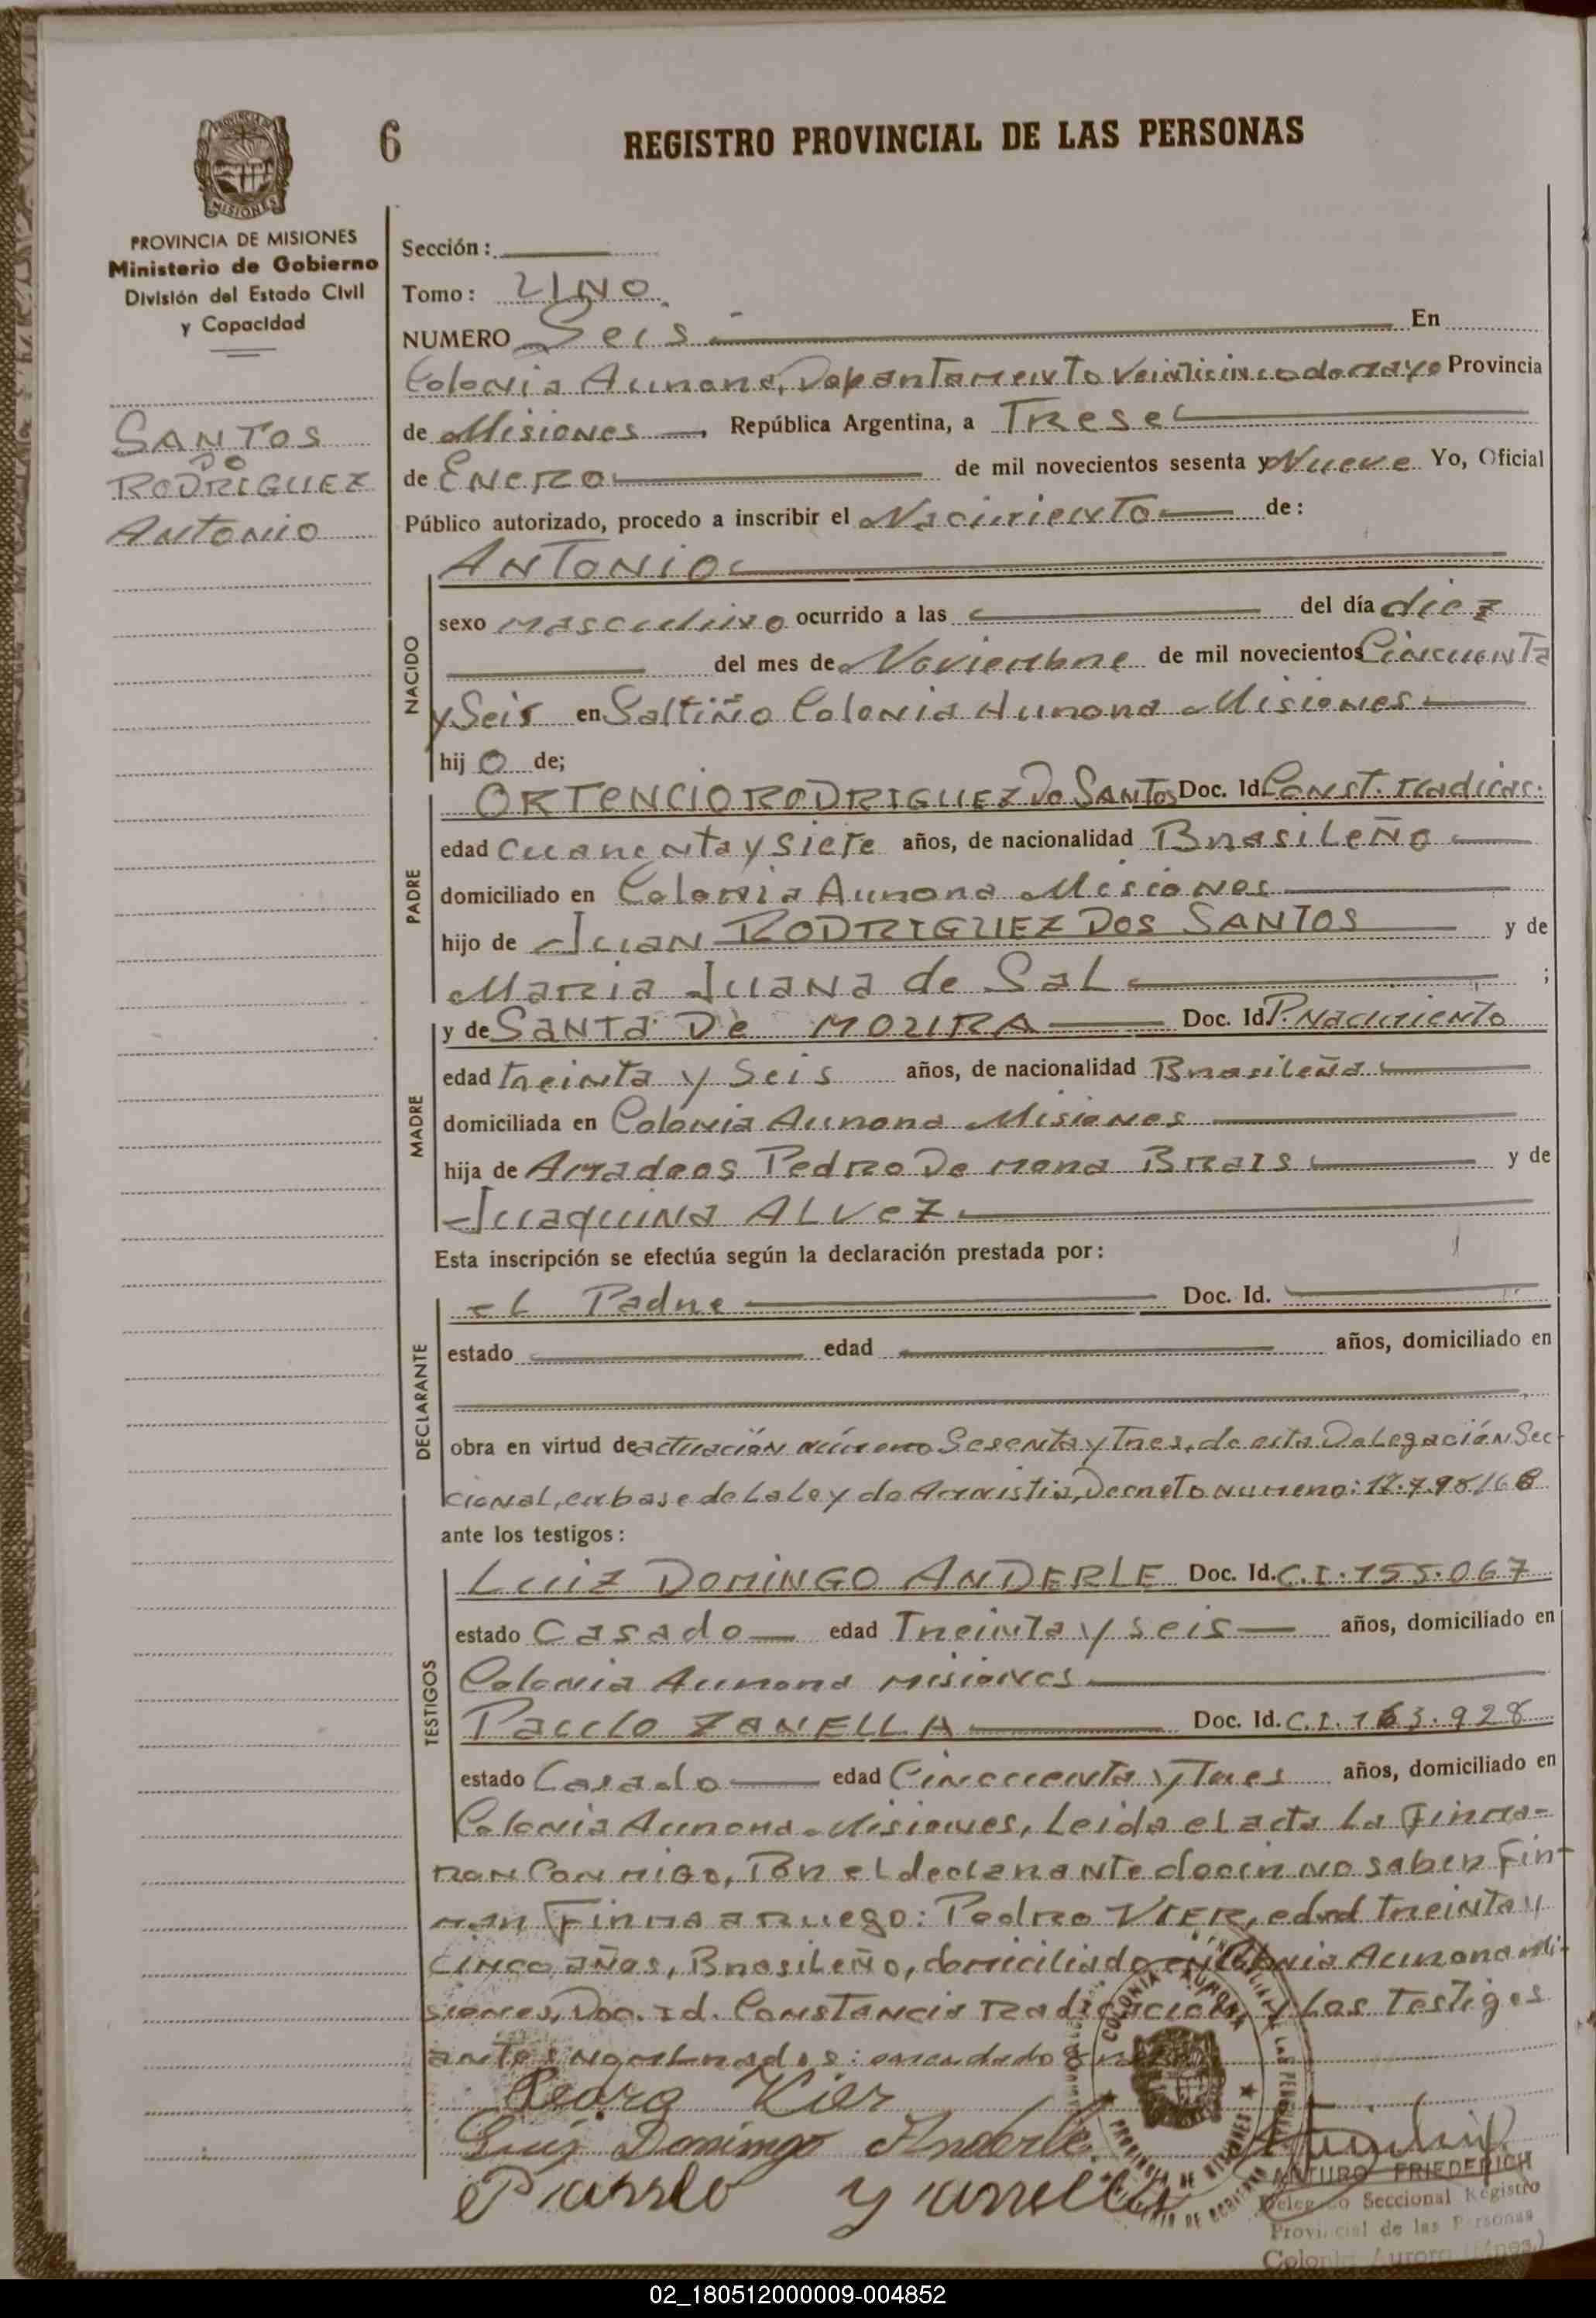 6
REGISTRO PROVINCIAL DE LAS PERSONAS
PROVINCIA DE MISIONES
Ministerio de Gobierno
División del Estado Civil
y Capacidad
SANTOS
DO
RODRIGUEZ
ANTONIO
Sección:
Tomo: UNO
NUMERO Seis En
Colonia Aurora, Departamento Veinticinco de mayo Provincia
de Misiones, República Argentina, a Trese
de Enero de mil novecientos sesenta y Nueve Yo, Oficial
Público autorizado, procedo a inscribir el Nacimiento de:
NACIDO
ANTONIO
sexo masculino ocurrido a las del día diez
del mes de Noviembre de mil novecientos Cincuenta
y Seis en Saltiño Colonia Aurora Misiones
hij o de;
PADRE
ORTENCIO RODRIGUEZ Do SANTOS Doc. Id. Const. radicac.
edad cuarenta y siete años, de nacionalidad Brasileño
domiciliado en Colonia Aurora Misiones
hijo de Juan RODRIGUEZ DOS SANTOS y de
Maria Juana de Sal ;
MADRE
y de SANTA De MOURA Doc. Id. P. Nacimiento
edad treinta y Seis años, de nacionalidad Brasileña
domiciliada en Colonia Aurora Misiones
hija de Amadeos Pedro De mora Brals y de
Juaquina ALVEZ
Esta inscripción se efectúa según la declaración prestada por:
DECLARANTE
el Padre Doc. Id.
estado edad años, domiciliado en
obra en virtud de actuación número Sesenta y Tres, de esta Delegación Sec
cional, en base de La Ley de Amnistia, Decreto numero: 17.798/68
ante los testigos:
TESTIGOS
Luiz DOMINGO ANDERLE Doc. Id. C.I. 155.067
estado Casado edad Treinta y seis años, domiciliado en
Colonia Aurora Misiones
Paulo ZANELLA Doc. Id. C.I. 163.928
estado Casado edad Cincuenta y Tres años, domiciliado en
Colonia Aurora Misiones, Leida el acta La Firma-
ron Con migo, Por el declarante decir no saber Fir-
mar Firma a ruego: Pedro VIER, edad treinta y
cinco años, Brasileño, domiciliado en Colonia Aurora Mi-
siones, Doc. Id. Constancia radicación, y Los Testigos
antes nombrados: enmendado
Pedro Vier
Luiz Domingo Anderle
Paullo Zanella
COLONIA AURORA
PROVINCIA DE MISIONES
ARTURO FRIEDERICH
Delegado Seccional Registro
Provincial de las Personas
Colonia Aurora (Mnes.)
02_180512000009-004852